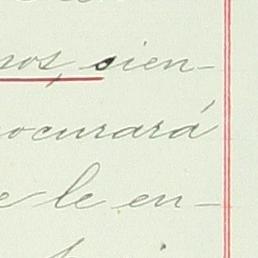 sos, sien-
ocurará
e le en-